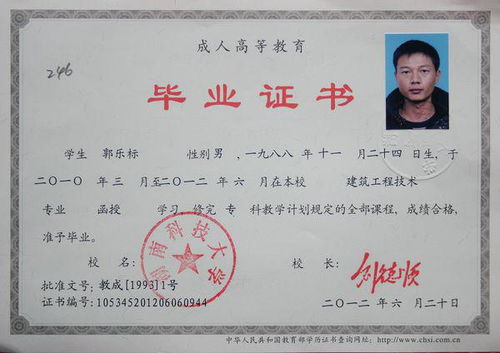 成人高等教育
246
毕业证书
学生 郭乐标 性别男 ，一九八八年十一月二十四日生，于
二〇一〇年三月至二〇一二年六月在本校 建筑工程技术
专业 函授 学习，修完 专 科教学计划规定的全部课程，成绩合格，
准予毕业。
校 名： 湖南科技大学
校 长：
批准文号：教成[1993]1号
证书编号：105345201206060944
二〇一二年六月二十日
中华人民共和国教育部学历证书查询网址：http://www.chsi.com.cn